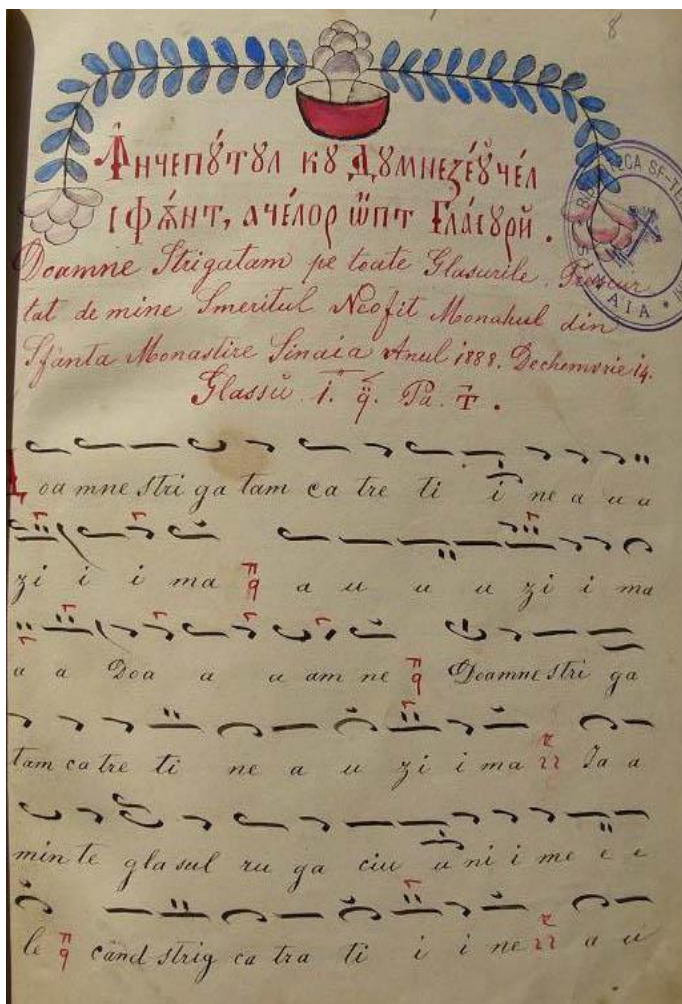 8
Ꙟнчепꙋ́тꙋл кꙋ Дꙋмнезеꙋ́ чел
сфѫ́нт, ачéлор ѡ҆пт Гла́сꙋрй .
Doamne Strigatam pe toate Glasurile.
tat de mine Smeritul Neofit Monahul din
Sfânta Monastire Sinaia Anul 1888. Dechemvrie 14.
Glassŭ. 1. q̈. Pa.
Doamne stri ga tam ca tre ti i ne a u a
zi i i ma a u u u zi i ma
a a Doa a a am ne Doamne stri ga
tam ca tre ti ne a u zi i ma Ia a
min te glasul ru ga ciu u ni i me e e
le când strig ca tra ti i i ne a u
SINAIA